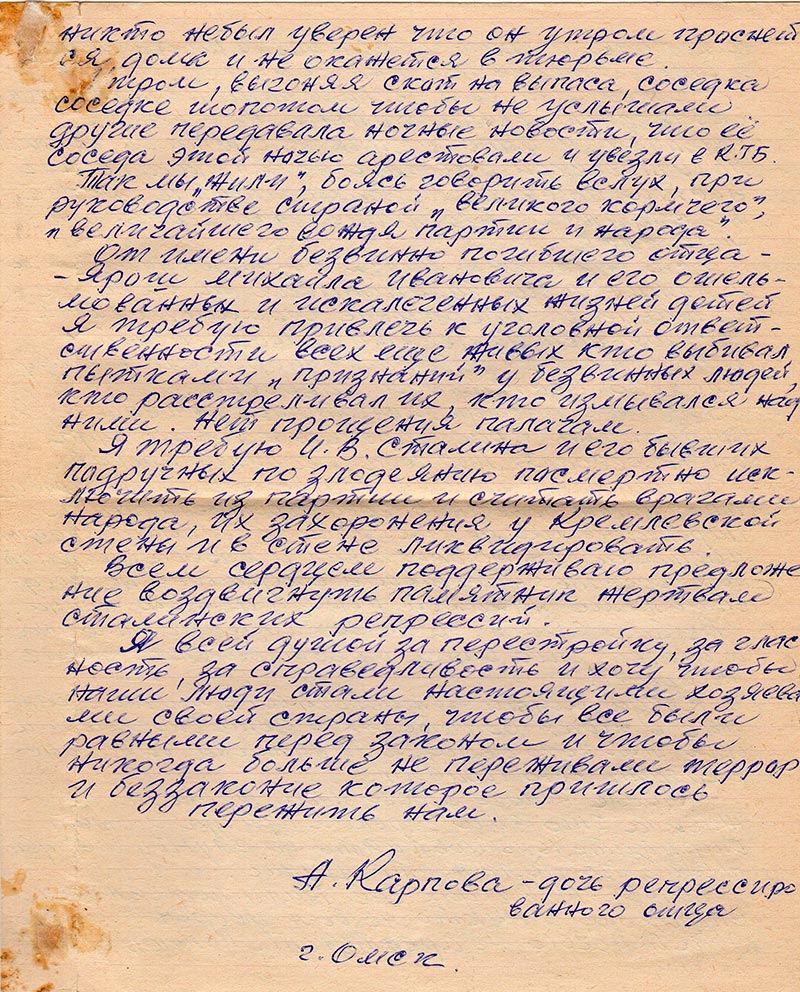 никто небыл уверен что он утром проснет
ся, дома и не окажется в тюрьме.
Утром, выгоняя скот на выпаса, соседка
соседке шопотом чтобы не услышали
другие передавала ночные новости, что её
соседа этой ночью арестовали и увезли в К.Г.Б.
Так мы „жили", боясь говорить вслух, при
руководстве страной „великого кормчего",
„величайшего вождя партии и народа".
От имени безвинно погибшего отца -
- Ярош Михаила Ивановича и его ошель-
мованных и искалеченных жизней детей
Я требую привлечь к уголовной ответ-
ственности всех еще живых кто выбивал,
пытками „признаний" у безвинных людей,
кто расстреливал их, кто измывался над
ними. Нет прощения палачам.
Я требую И.В. Сталина и его бывших
подручных по злодеянию посмертно иск-
лючить из партии и считать врагами
народа, их захоронения у Кремлевской
стены и в стене ликвидировать.
Всем сердцем поддерживаю предложе
ние воздвигнуть памятник жертвам
сталинских репрессий.
Я всей душой за перестройку, за глас
ность, за справедливость и хочу чтобы
наши люди стали настоящими хозяева
ми своей страны, чтобы все были
равными перед законом и чтобы
никогда больше не переживали террор
и беззаконие которое пришлось
пережить нам.
А. Карпова - дочь репрессиро
ванного отца
г. Омск.